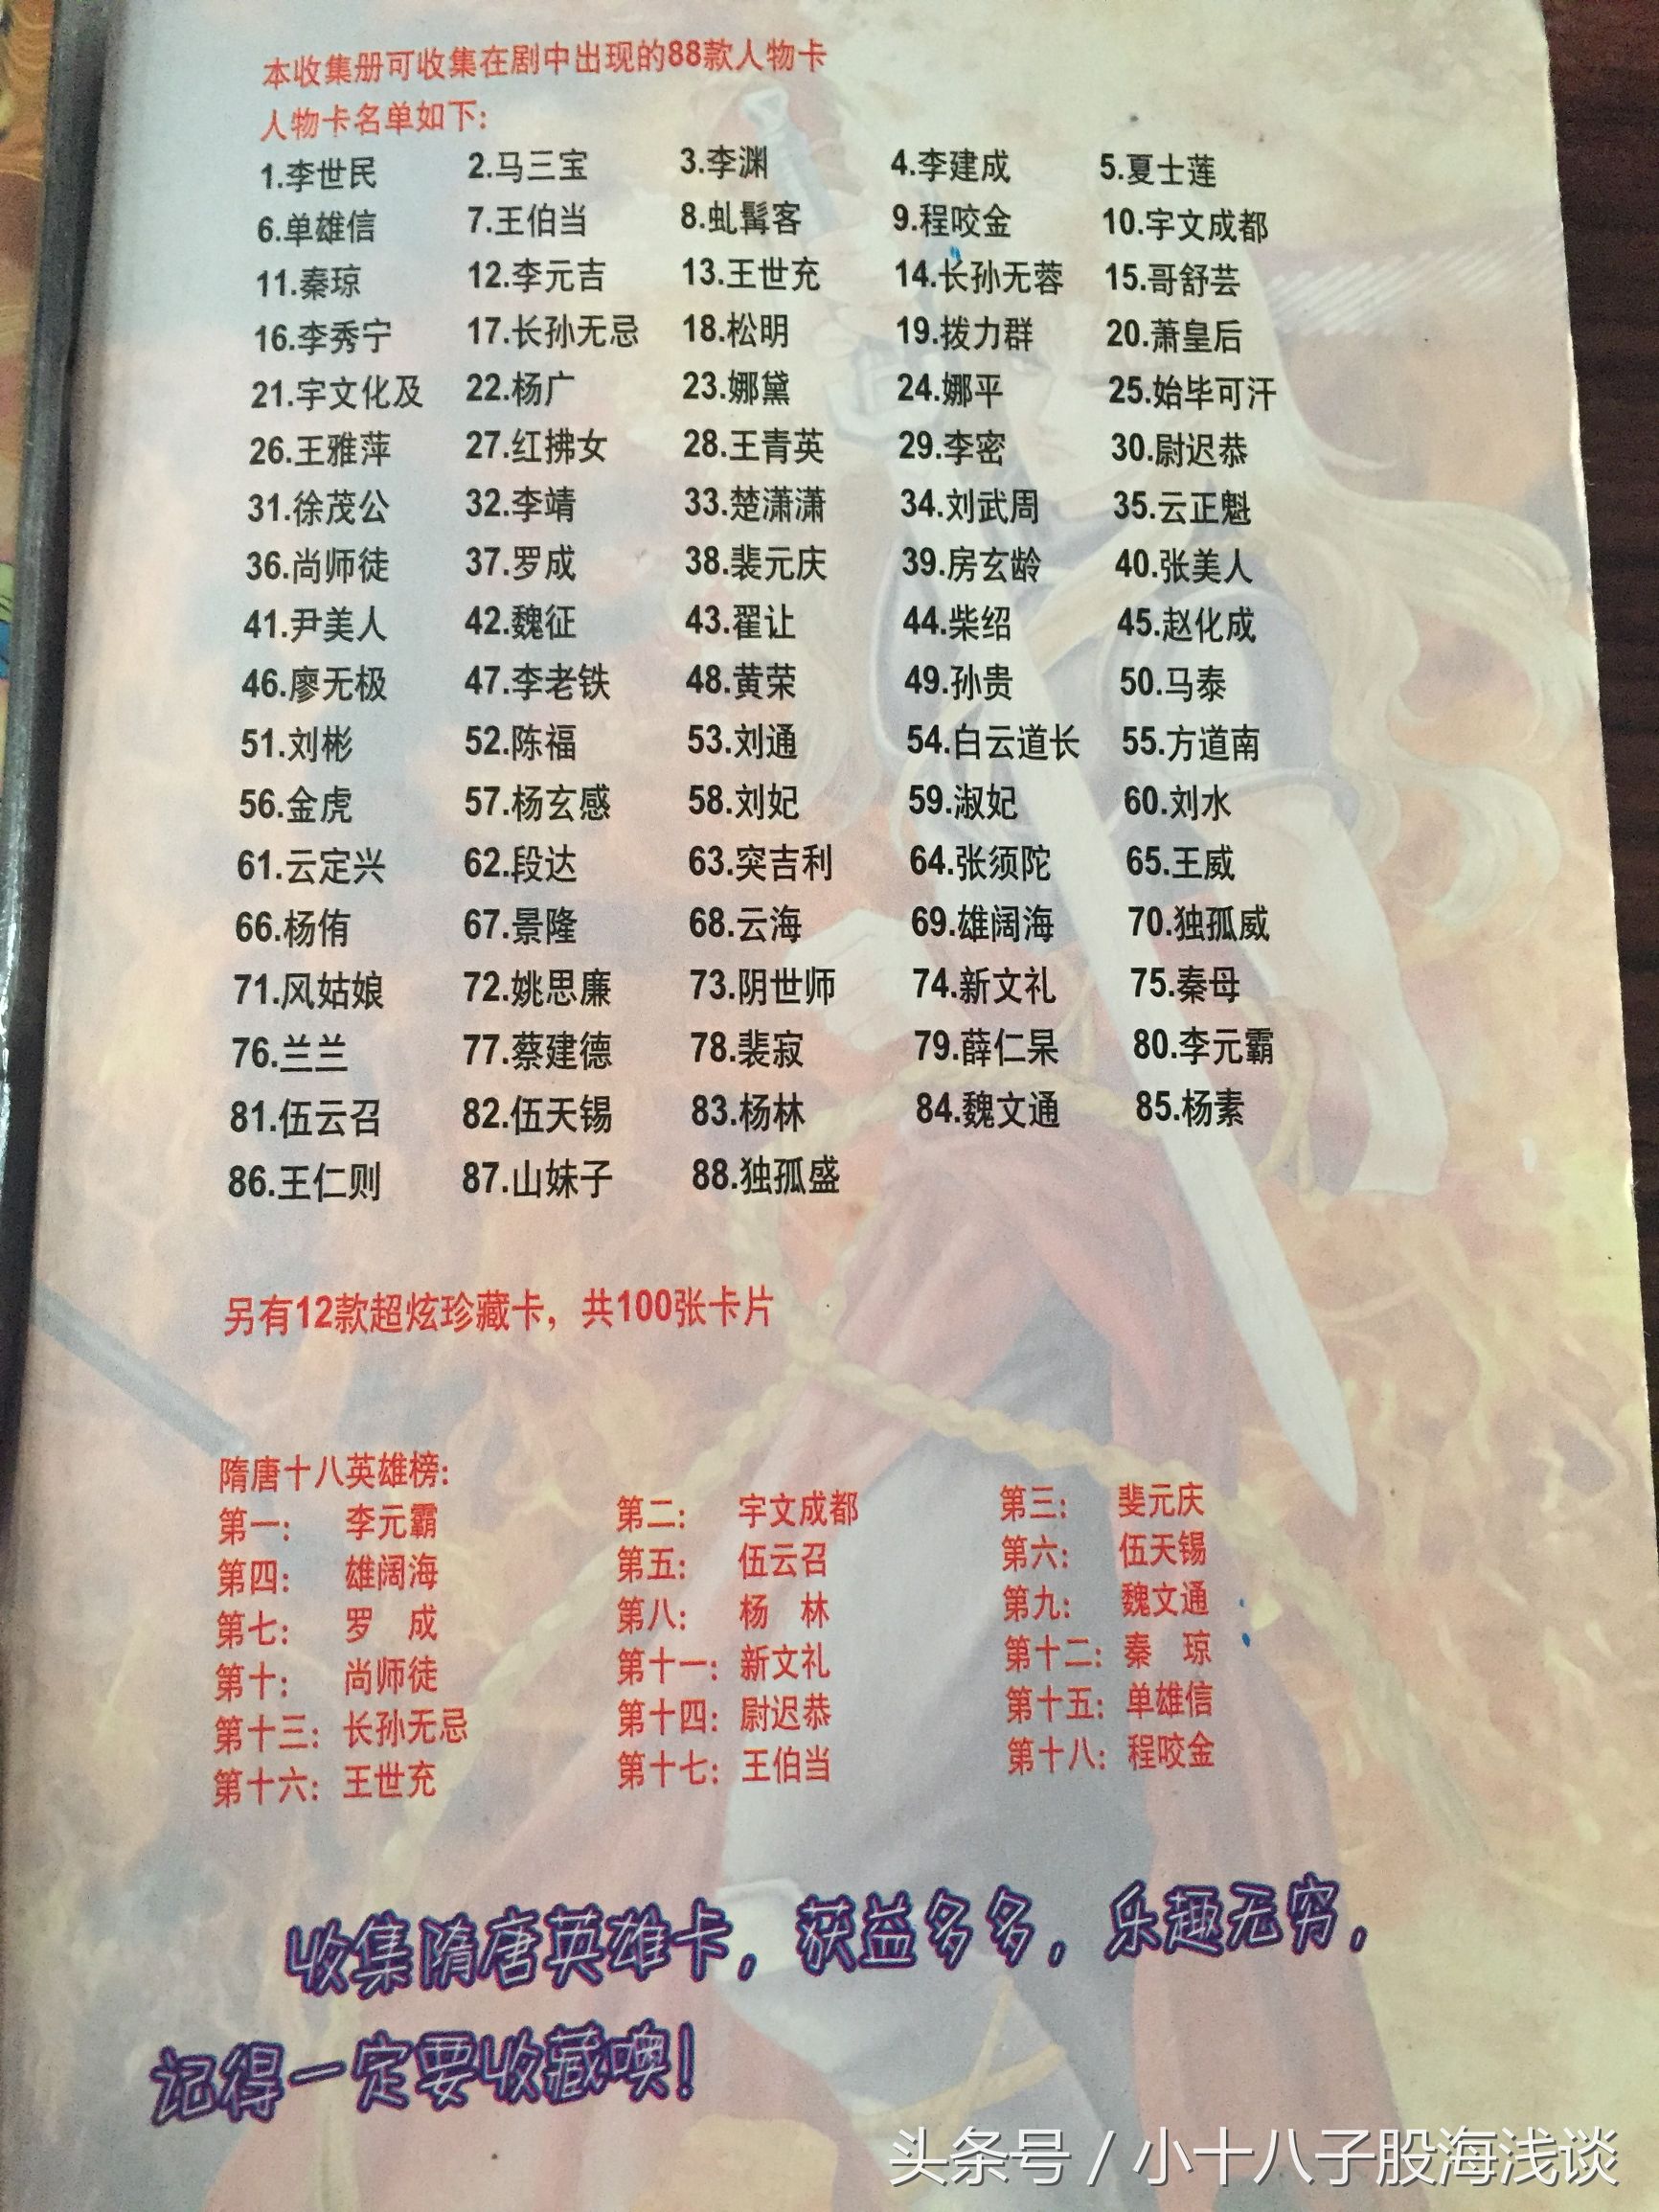 本收集册可收集在剧中出现的88款人物卡
人物卡名单如下:
1.李世民 2.马三宝 3.李渊 4.李建成 5.夏士莲
6.单雄信 7.王伯当 8.虬髯客 9.程咬金 10.宇文成都
11.秦琼 12.李元吉 13.王世充 14.长孙无蓉 15.哥舒芸
16.李秀宁 17.长孙无忌 18.松明 19.拨力群 20.萧皇后
21.宇文化及 22.杨广 23.娜黛 24.娜平 25.始毕可汗
26.王雅萍 27.红拂女 28.王青英 29.李密 30.尉迟恭
31.徐茂公 32.李靖 33.楚潇潇 34.刘武周 35.云正魁
36.尚师徒 37.罗成 38.裴元庆 39.房玄龄 40.张美人
41.尹美人 42.魏征 43.翟让 44.柴绍 45.赵化成
46.廖无极 47.李老铁 48.黄荣 49.孙贵 50.马泰
51.刘彬 52.陈福 53.刘通 54.白云道长 55.方道南
56.金虎 57.杨玄感 58.刘妃 59.淑妃 60.刘水
61.云定兴 62.段达 63.突吉利 64.张须陀 65.王威
66.杨侑 67.景隆 68.云海 69.雄阔海 70.独孤威
71.风姑娘 72.姚思廉 73.阴世师 74.新文礼 75.秦母
76.兰兰 77.蔡建德 78.裴寂 79.薛仁杲 80.李元霸
81.伍云召 82.伍天锡 83.杨林 84.魏文通 85.杨素
86.王仁则 87.山妹子 88.独孤盛
另有12款超炫珍藏卡，共100张卡片
隋唐十八英雄榜:
第一: 李元霸 第二: 宇文成都 第三: 斐元庆
第四: 雄阔海 第五: 伍云召 第六: 伍天锡
第七: 罗 成 第八: 杨 林 第九: 魏文通
第十: 尚师徒 第十一: 新文礼 第十二: 秦 琼
第十三: 长孙无忌 第十四: 尉迟恭 第十五: 单雄信
第十六: 王世充 第十七: 王伯当 第十八: 程咬金
收集隋唐英雄卡，获益多多，乐趣无穷，
记得一定要收藏噢!
头条号 / 小十八子股海浅谈